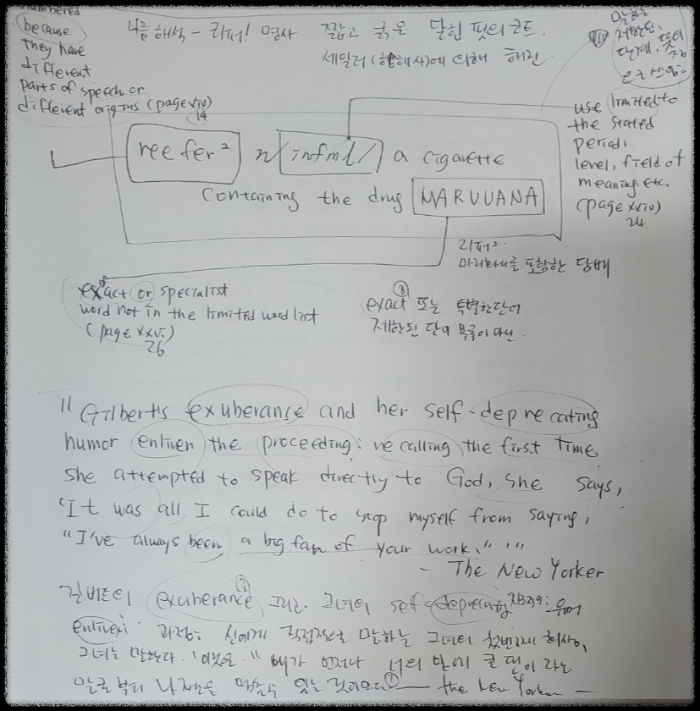 numbered
because
they have
different
parts of speech or
different origins (page xiv)
14
나름 해석 - 리퍼! 명사 짧고 굵은 닫힌 핏의 코트.
세일러(항해사)에 의해 해진
말하는
제한된,
단계, 뜻의
use limited to
the stated
period,
level, field of
meaning, etc.
(page xxiv)
24
reefer² n /infml/ a cigarette
containing the drug MARIJUANA
리퍼².
마리화나를 포함한 담배.
exact or specialist
word not in the limited word list
(page xxvi)
26
exact 또는 특별한 단어
제한된 단어 목록이 아닌.
"Gilbert's exuberance and her self-deprecating
humor enliven the proceeding: recalling the first time
she attempted to speak directly to God, she says,
'It was all I could do to stop myself from saying,
"I've always been a big fan of your work."'"
- The New Yorker
길버트의 exuberance 그리고 그녀의 self-deprecating 유머
enliven 과정: 신에게 직접적으로 말하는 그녀의 첫번째 회상,
그녀는 말한다. '이것은." 내가 언제나 너의 일에 큰 팬이라는
말로부터 나 자신을 멈출수 있는 것이었다 — the New Yorker —